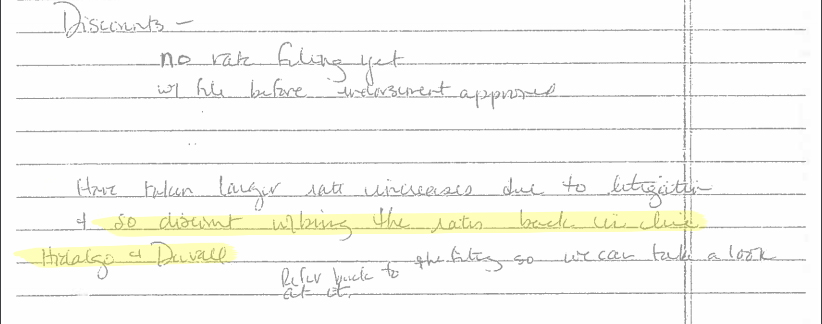 Discounts -
no rate filing yet
w/ file before endorsement approved
Have taken larger rate increases due to litigation
+ so discount w/bring the rates back in line
Hidalgo + Duvall
Refer back to the filing so we can take a look
at it.